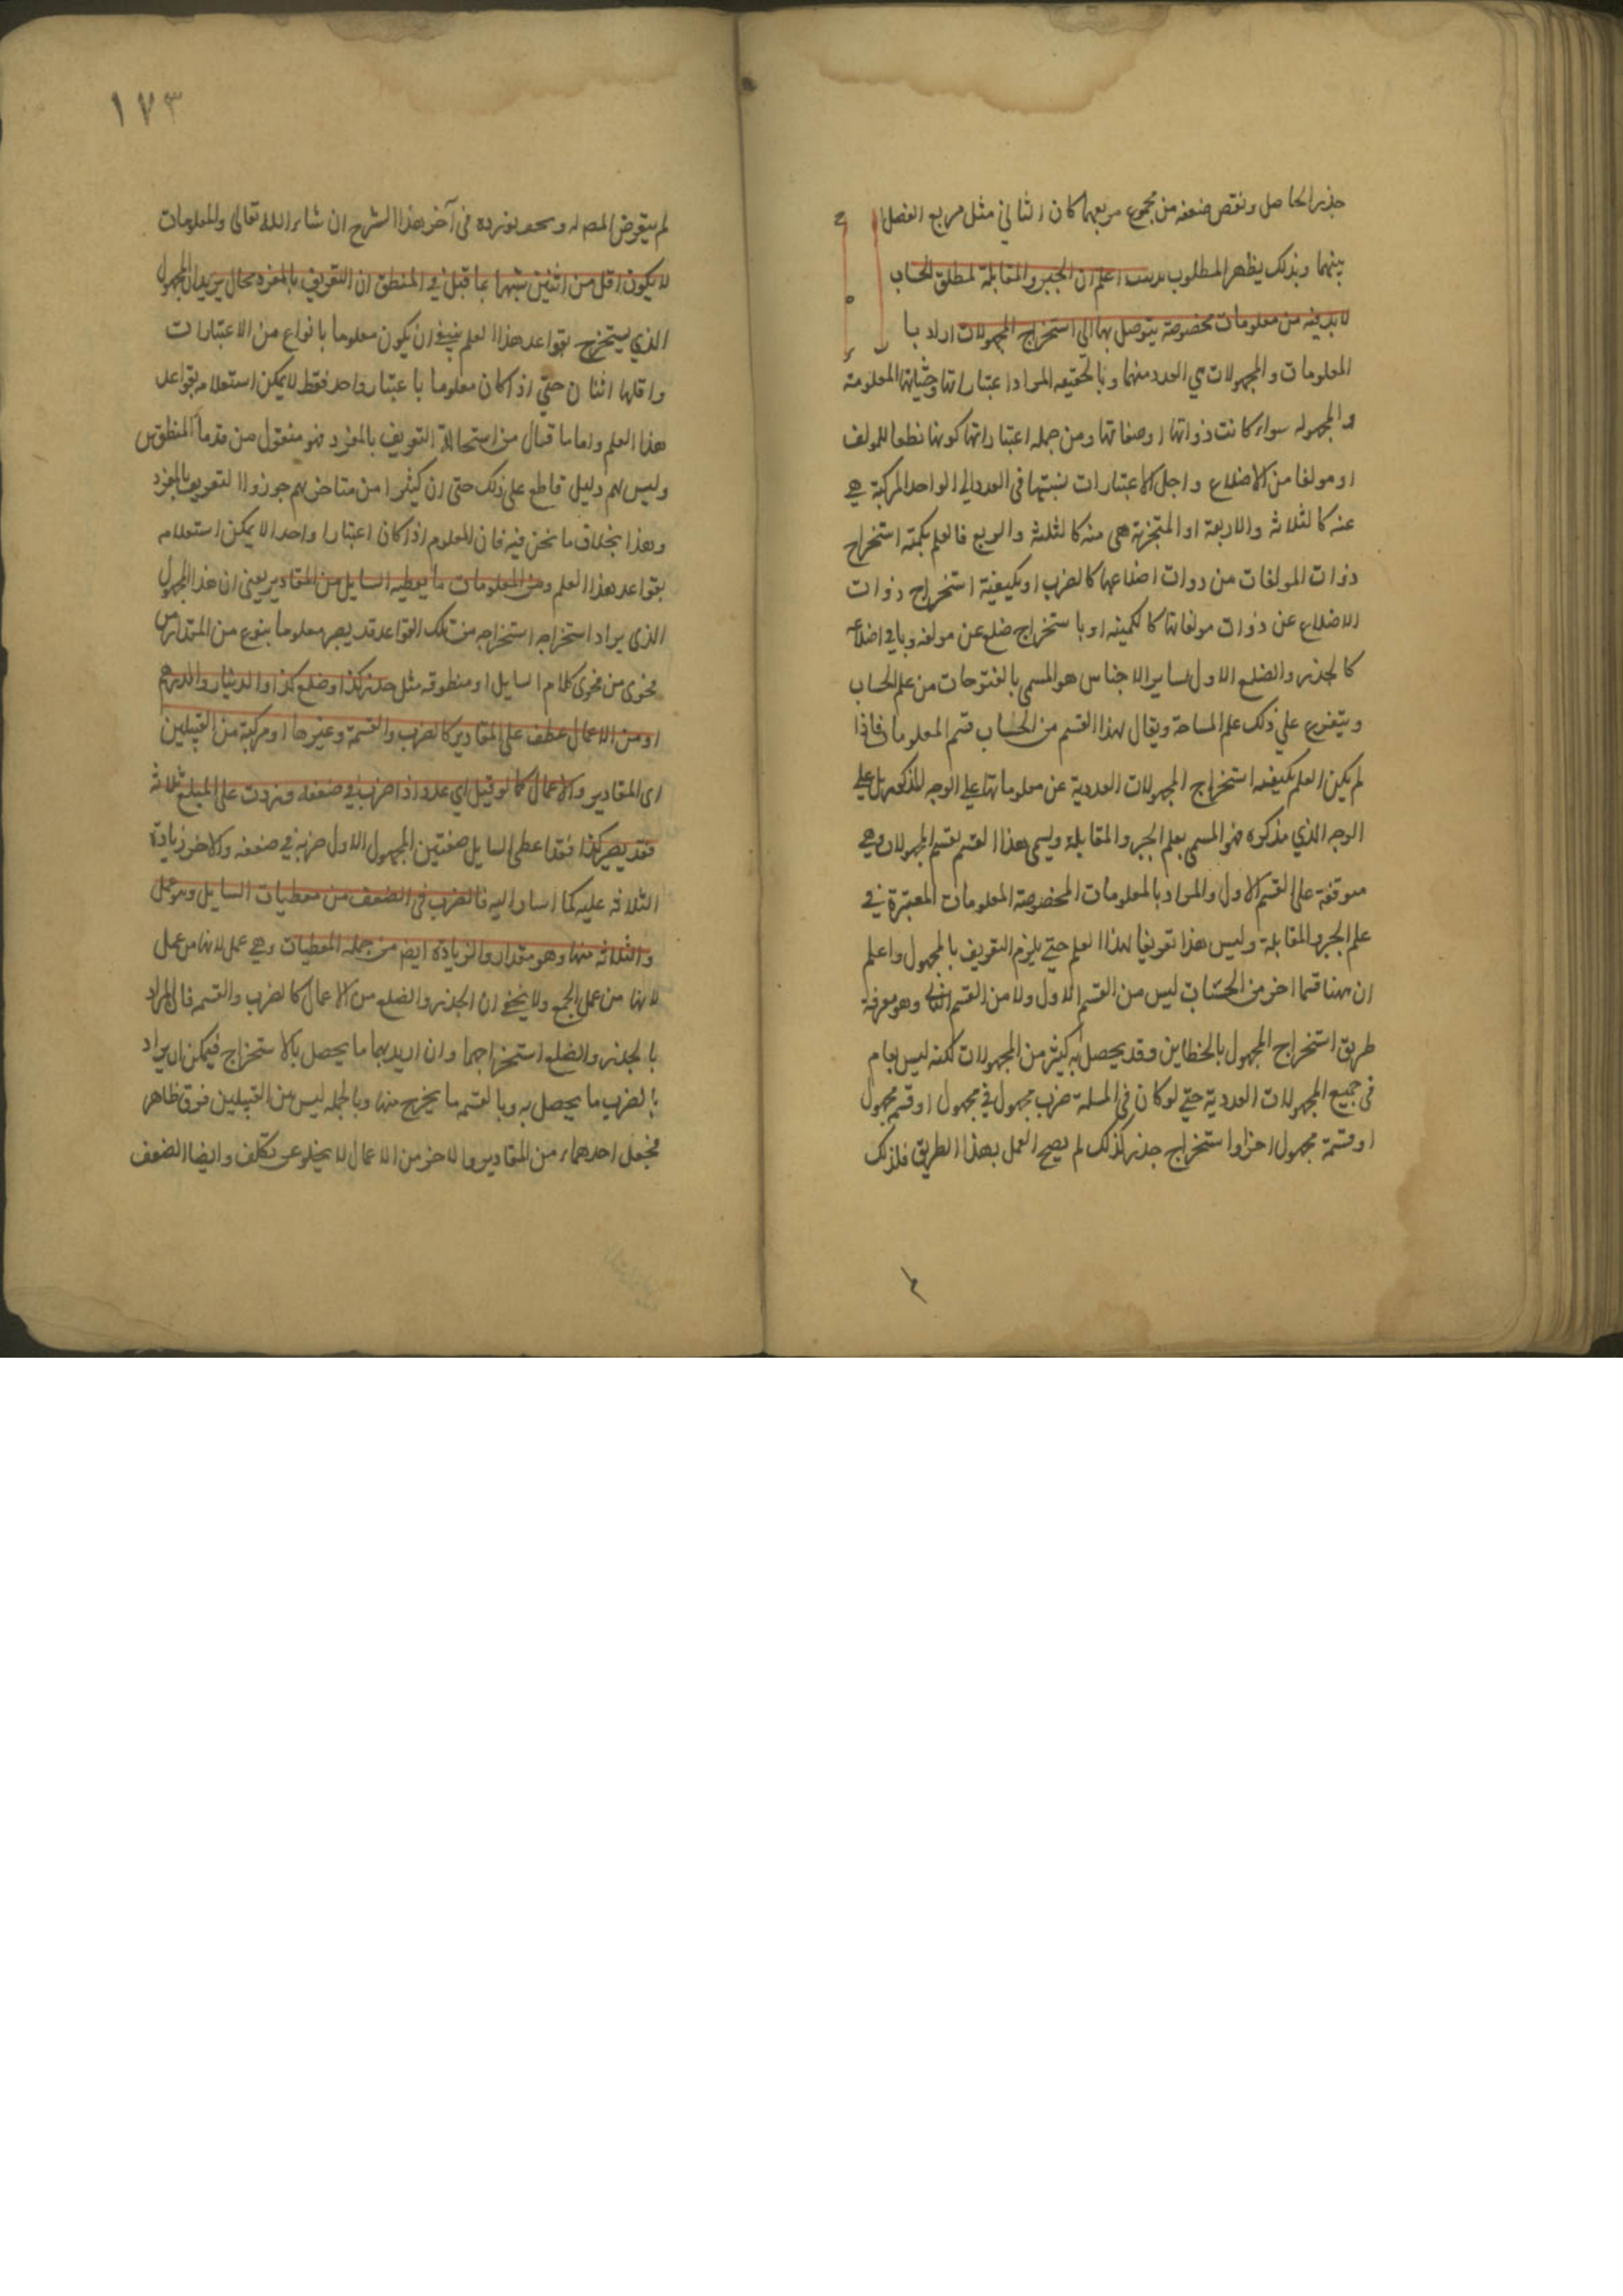 جذر الحاصل ونقص ضعفه من مجموع مربعهما كان الثاني مثل مربع الفضل
بينهما وبذلك يظهر المطلوب اعلم ان الجبر والمقابلة لمطلق الحساب
لابد فيه من معلومات مخصوصة يتوصل بها الى استخراج المجهولات اراد با
المعلومات والمجهولات العدد منهما وبالحقيقه المراد اعتباراتها وحثياتها المعلومة
والمجهوله سواء كانت ذواتها او صفاتها ومن جمله اعتباراتها كونها للمولف
او مولفا من الاضلاع واجل الاعتبارات نسبتها في العدد الي الواحد المركبة هي
عنه كالثلاثة والاربعة او المتجزية هي منه كالثلث والربع فالعلم استخراج
ذوات المولفات من ذوات اضلاعها كالضرب او بكيفية استخراج ذوات
الاضلاع عن ذوات مولفاتها كالقسمة او باستخراج ضلع عن مولفه وباقي اضلاعه
كالجذر والضلع الاول لساير الاجناس هو المسمي بالمفتوحات من علم الحساب
ويتفرع علي ذلك علم المساحة ويقال لهذا القسم من الحساب قسم المعلومات فاذا
لم يكن العلم بكيفيه استخراج المجهولات العددية عن معلوماتها علي الوجه المذكور بل علي
الوجه الذي مذكوره فهو المسمي بعلم الجبر والمقابلة ويسمي هذا القسم بقسم المجهولات وهي
متوقفة علي القسم الاول والمراد بالمعلومات المخصوصة المعلومات المعتبرة في
علم الجبر والمقابلة وليس هذا تعريفا لهذا العلم حتي يلزم التعريف بالمجهول واعلم
ان ههنا قسما اخر من الحساب ليس من القسم الاول ولا من القسم الثاني وهو معرفة
طريق استخراج المجهول بالخطاين وقد يحصل به كثير من المجهولات لكنه ليس بعام
في جميع المجهولات العددية حتي لو كان في المسلة ضرب مجهول في مجهول او قسم مجهول
او قسمة مجهول اخر او استخراج جذر كذلك لم يصح العمل بهذا الطريق فلذلك
١٧٣
لم يتعرض المصـ له ونحن نورده في آخر هذا الشرح ان شاء الله تعالى والمعلومات
لا يكون اقل من اثنين تشبيها بما قيل في المنطق ان التعريف بالمفرد محال يريد ان المجهول
الذي يستخرج بقواعد هذا العلم ينبغي ان يكون معلوما بانواع من الاعتبارات
واقلها اثنان حتي اذا كان معلوما باعتبار واحد فقط لا يمكن استعلامه بقواعد
هذا العلم واما ما قال من استحالة التعريف بالمفرد فهو منقول من قدما المنطقيين
وليس لهم دليل قاطع على ذلك حتى ان كثيرا من متاخريهم جوزوا التعريف بالمفرد
وهذا بخلاف ما نحن فيه فان المعلوم اذا كان اعتبارا واحدا لا يمكن استعلامه
بقواعد هذا العلم ومن المعلومات ما يعطيه السايل من المقادير يعني ان هذا المجهول
الذي يراد استخراجه استخراجه من تلك القواعد قد يصير معلوما بنوع من المقدارين
فحوى من فحوى كلام السايل او منطوقه مثل جذر كذا وضلع كذا والدينار والدرهم
او من الاعمال عطف علي المقادير كالضرب والقسمة وغيرها او مركبة من القبيلين
اى المقادير والاعمال كما لو قيل اي عدد اذا ضرب في ضعفه وزدت على المبلغ ثلاثة
فقد يصير كذا فقد اعطى السايل صفتين المجهول الاول ضربه في ضعفه والاخر زيادة
الثلاثه عليه كما اشار اليه فالضرب في الضعف من معطيات السايل وهو عمل
والثلاثه منها وهو مقدار والزيادة ايضم من جمله المعطيات وهي عمل لانها من عمل
لانها من عمل الجمع ولا يخفى ان الجذر والضلع من الاعمال كالضرب والقسمه فان المراد
بالجذر والضلع استخراجهما وان اريد بهما ما يحصل بالاستخراج فيمكن ان يراد
بالضرب ما يحصل به وبالقسمه ما يخرج منها وبالجمله ليس بين القبيلين فرق ظاهر
فجعل احدهما من المقادير والاخر من الاعمال لا يخلو عن تكلف وايضا الضعف